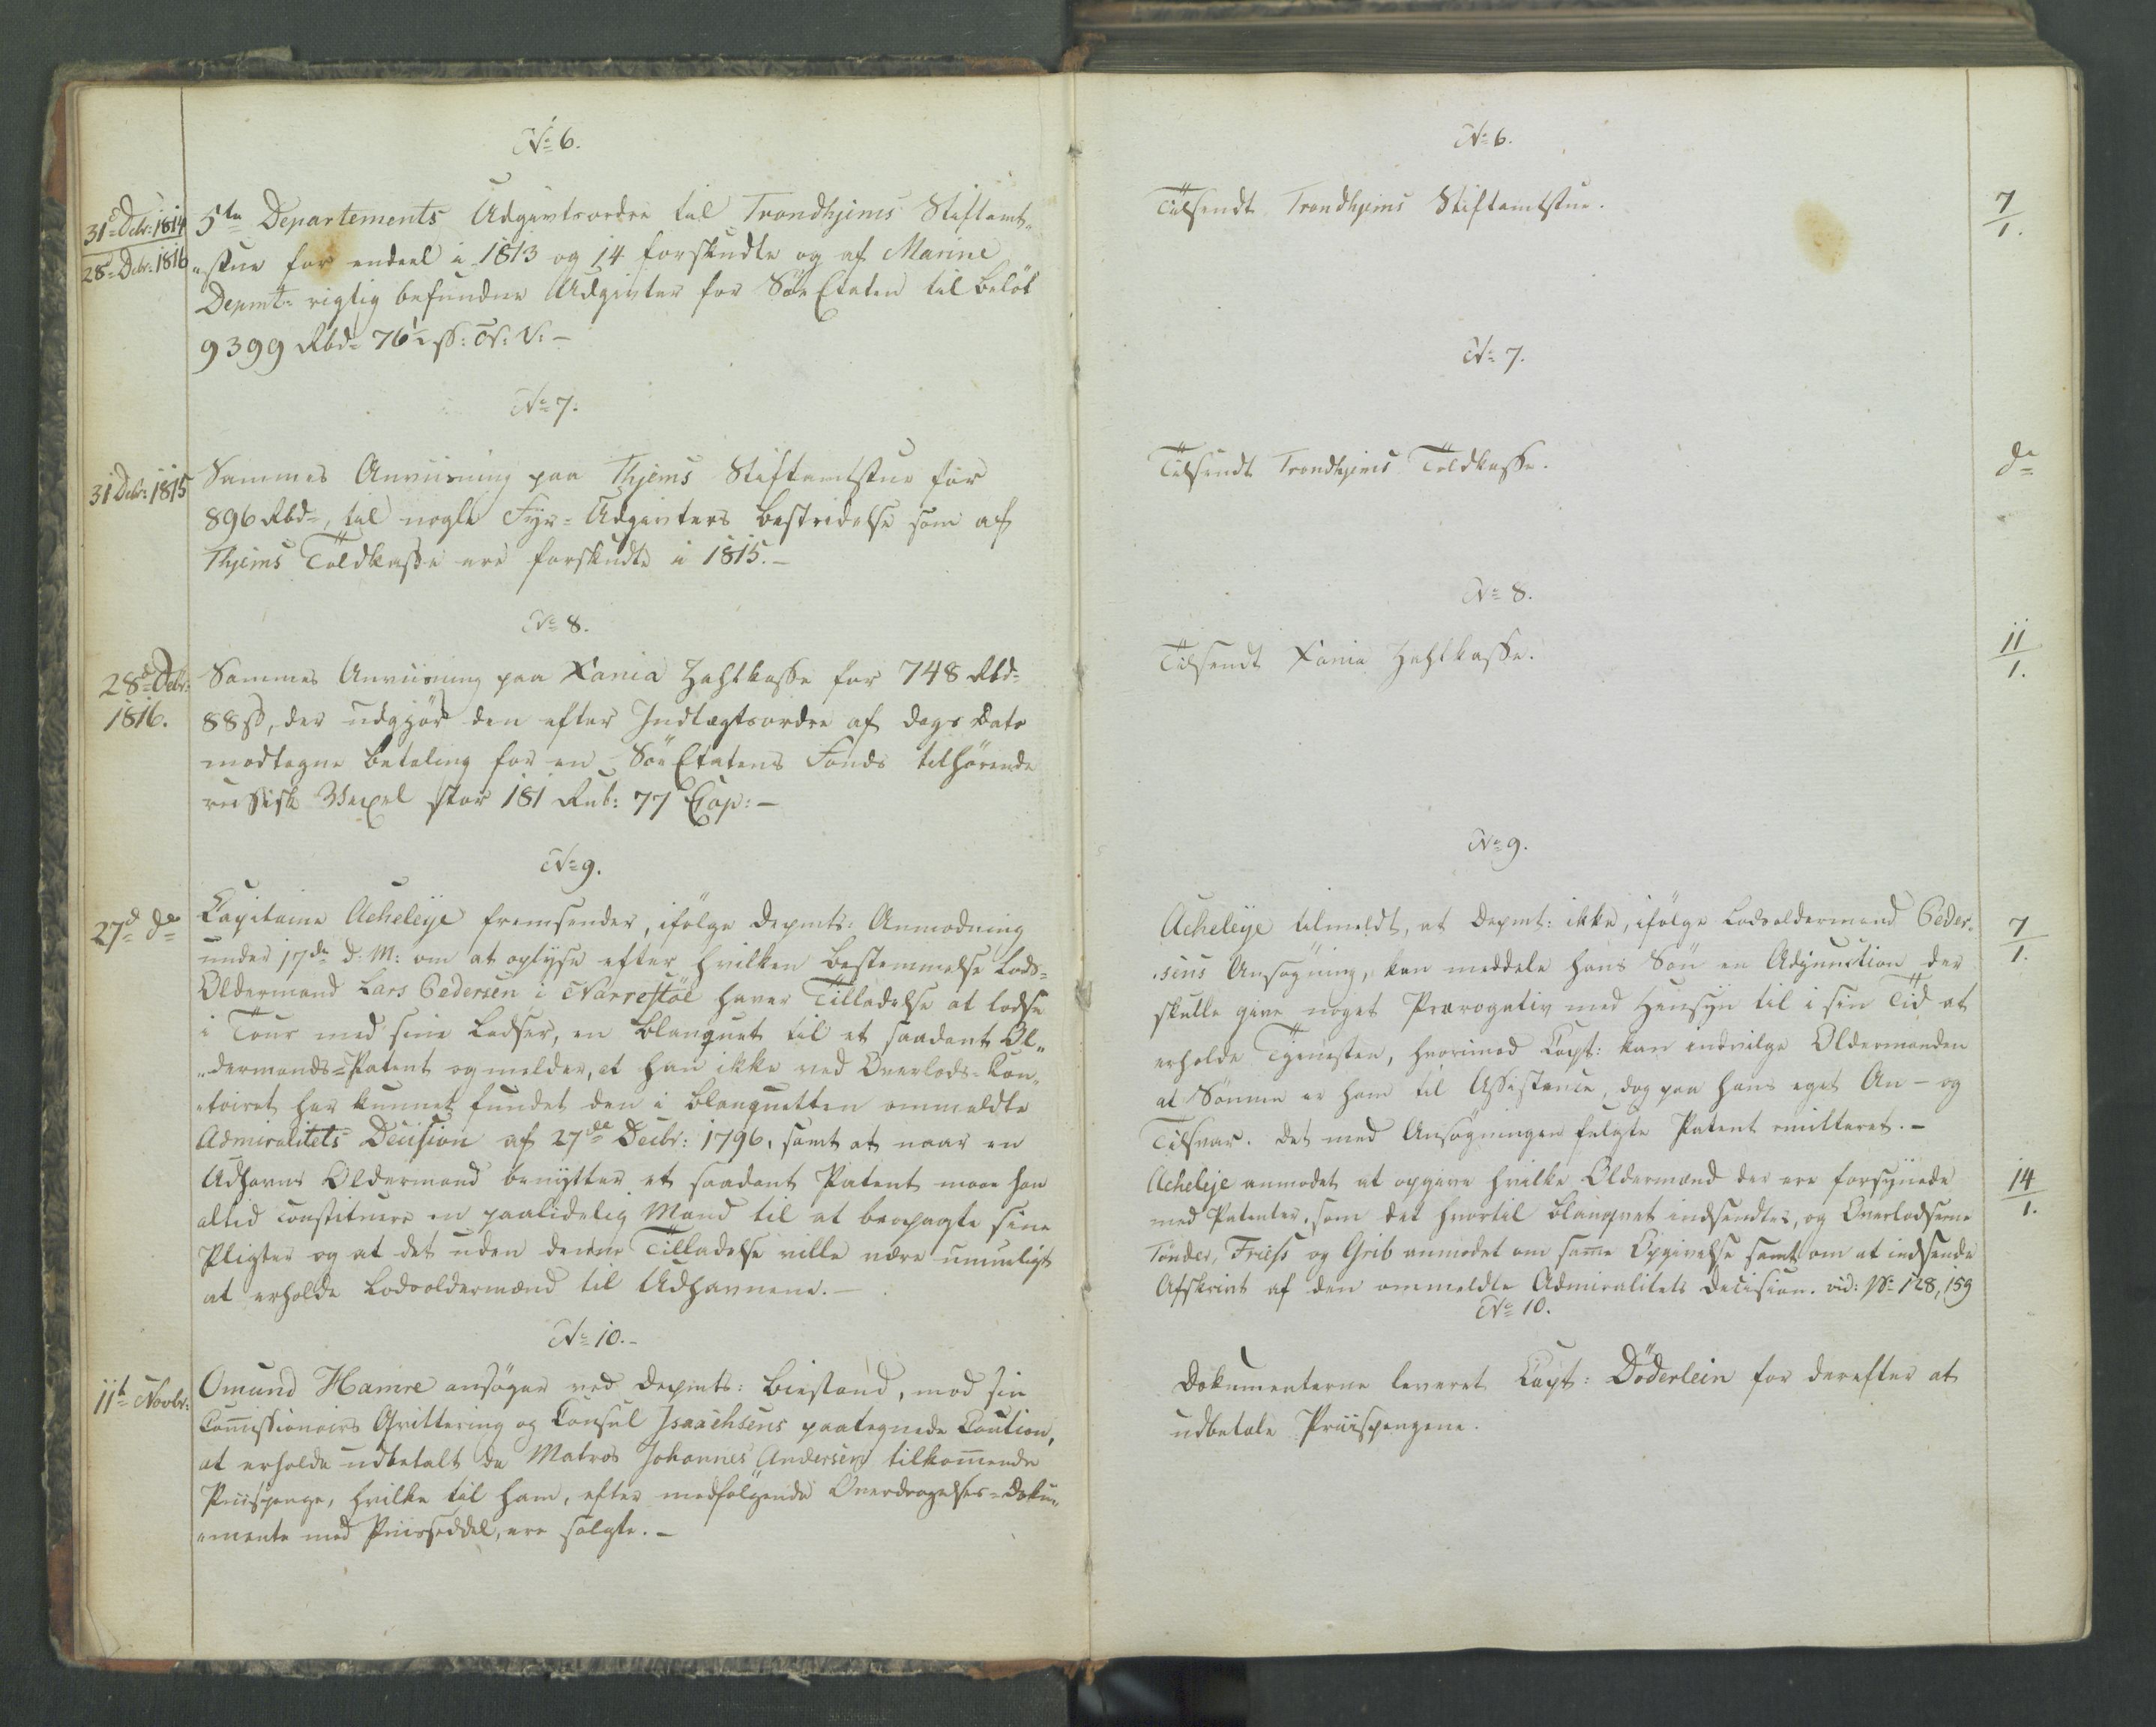 No 6.
31e Debr: 1814
28d Debr: 1816
5te Departements Udgivtsordre til Trondhjems Stiftamt„
„stue for endeel i 1813 og 14 forskudte og af Marine
Depmt: rigtig befundne Udgivter for Söe Etaten til Beløb
9399 Rbd: 76½ ss: N: V: –
No 7.
31 Debr: 1815
Sammes Anviisning paa Thjems Stiftamtstue for
896 Rbd:, til nogle Fyr-Udgivters Bestridelse som af
Thjems Toldkasse ere forskudte i 1815. –
No 8.
28d Debr:
1816.
Sammes Anviisning paa Xania Zahlkasse for 748 Rbd:
88 ss, der udgjör den efter Indtægtsordre af Dags Dato
modtagne Betaling for en Söe Etatens Fonds tilhörende
russisk Vexel stor 181 Rub: 77 Cop: –
No 9.
27d do
Capitaine Acheleye fremsender, ifölge Depmts: Anmodning
under 17de d: M: om at oplyse efter hvilken Bestemmelse Lods-
Oldermand Lars Pedersen i Narrestöe haver Tilladelse at lodse
i Tour med sine Lodser, en Blanquet til et saadant Ol„
„dermands-Patent og melder, at han ikke ved Overlods-Con„
„toiret har kunnet fundet den i Blanquetten ommeldte
Admiralitets Decision af 27de Decbr: 1796, samt at naar en
Udhavns Oldermand benytter et saadant Patent maae han
altid constituere en paalidelig Mand til at beopagte sine
Pligter og at det uden denne Tilladelse ville være umueligt
at erholde Lodsoldermænd til Udhavnene. –
No 10. –
11t Novbr:
Omund Hamre ansöger ved Depmts: Biestand, mod sin
Comissionairs Qvittering og Consul Isaachsens paategnede Caution,
at erholde udbetalt de Matros Johannes Andersen tilkommende
Priispenge, hvilke til ham, efter medfölgende Overdragelses-Doku„
„mente med Priisseddel, ere solgte. –
No 6.
Tilsendt Trondhjems Stiftamtstue.
7
1.
No 7.
Tilsendt Trondhjems Toldkasse.
do
No 8.
Tilsendt Xania Zahlkasse.
11
1.
No 9.
Acheleye tilmeldt, at Depmt: ikke, ifölge Lodsoldermand Peder„
„sens Ansögning, kan meddele hans Sön en Adjunction der
skulle give noget Prærogativ med Hensyn til i sin Tid at
erholde Tjenesten, hvorimod Capt: kan indvilge Oldermanden
at Sönnen er ham til Assistance, dog paa hans eget An- og
Tilsvar. Det med Ansögningen fulgte Patent remitteret. –
7
1.
Acheleje anmodet at opgive hvilke Oldermænd der ere forsynede
med Patenter, som det hvortil Blanquet indsendtes, og Overlodserne
Tönder, Friess og Grib anmodet om same Opgivelse samt om at indsende
Afskrivt af den ommeldte Admiralitets Decision. vid: No 128, 159
14
1.
No 10.
Dokumenterne leveret Capt: Döderlein for derefter at
udbetale Priispengene.